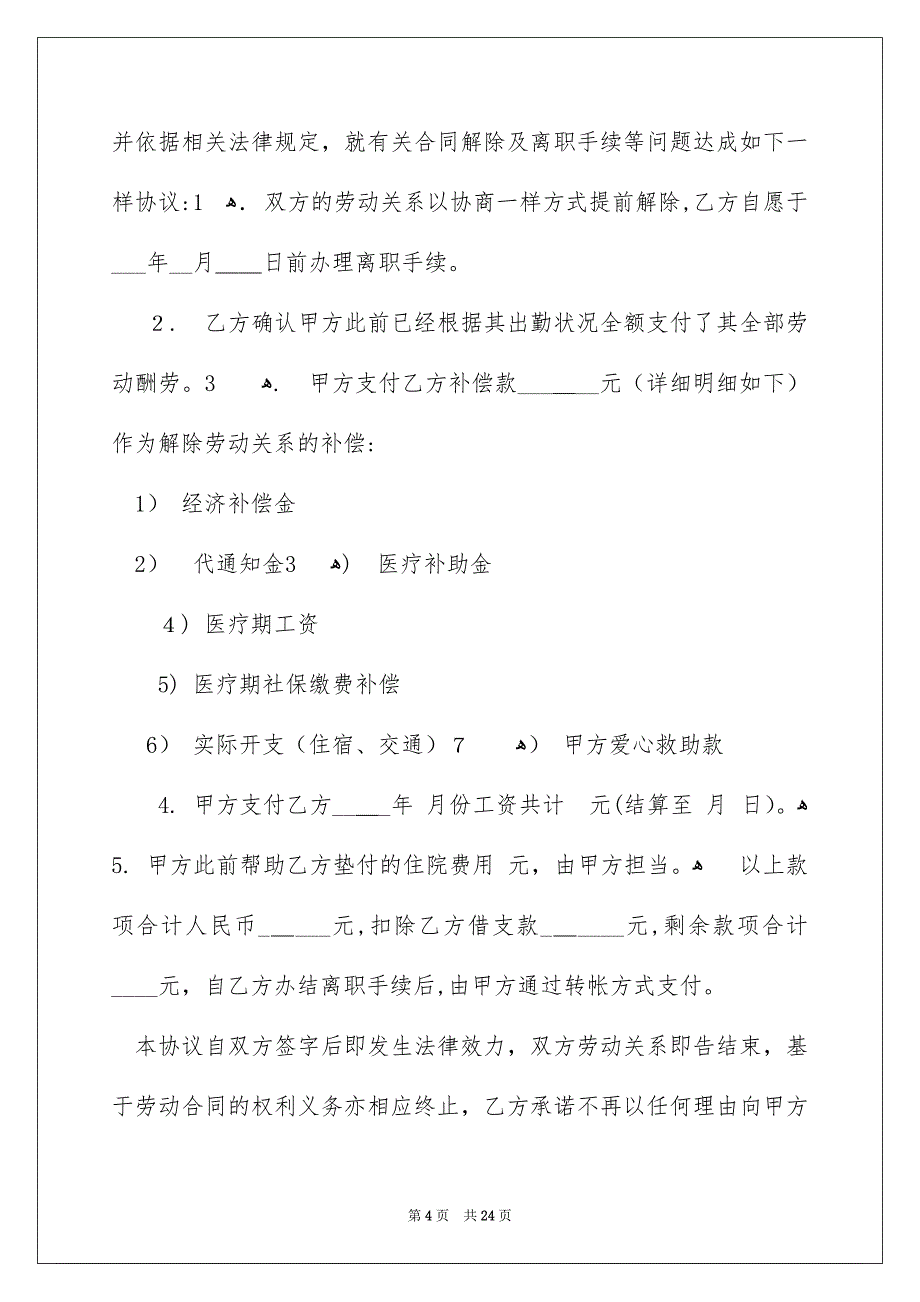 并依据相关法律规定，就有关合同解除及离职手续等问题达成如下一
样协议:1 ﻫ. 双方的劳动关系以协商一样方式提前解除,乙方自愿于
___年__月____日前办理离职手续。
２. 乙方确认甲方此前已经根据其出勤状况全额支付了其全部劳
动酬劳。3 ﻫ. 甲方支付乙方补偿款_______元（详细明细如下）
作为解除劳动关系的补偿:
1） 经济补偿金
2） 代通知金3 ﻫ) 医疗补助金
４) 医疗期工资
5) 医疗期社保缴费补偿
6） 实际开支（住宿、交通）７ ﻫ） 甲方爱心救助款
4. 甲方支付乙方_____年 月份工资共计 元(结算至 月 日)。ﻫ
5. 甲方此前帮助乙方垫付的住院费用 元，由甲方担当。ﻫ 以上款
项合计人民币______元,扣除乙方借支款_______元,剩余款项合计
____元，自乙方办结离职手续后,由甲方通过转帐方式支付。
本协议自双方签字后即发生法律效力，双方劳动关系即告结束，基
于劳动合同的权利义务亦相应终止，乙方承诺不再以任何理由向甲方
第4页 共24页